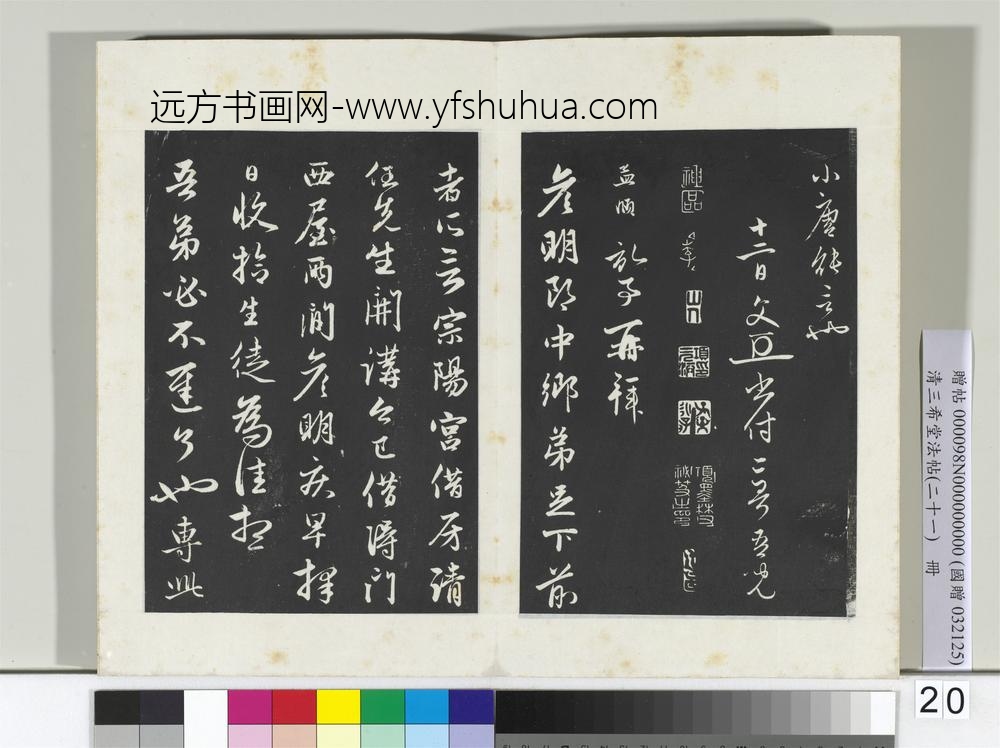 远方书画网-www.yfshuhua.com
小唐能言也
十二日文
付
吾兄
神品
孟頫
記事再拜
彦明郎中鄉弟足下前
者所言宗陽宮借房請
任先生開講今已借得門
西屋兩間彦明疾早擇
日收拾生徒為佳想
吾弟必不遲了也專此
贈帖 000098N000000000 (國贈 032125)
清三希堂法帖(二十一) 冊
20